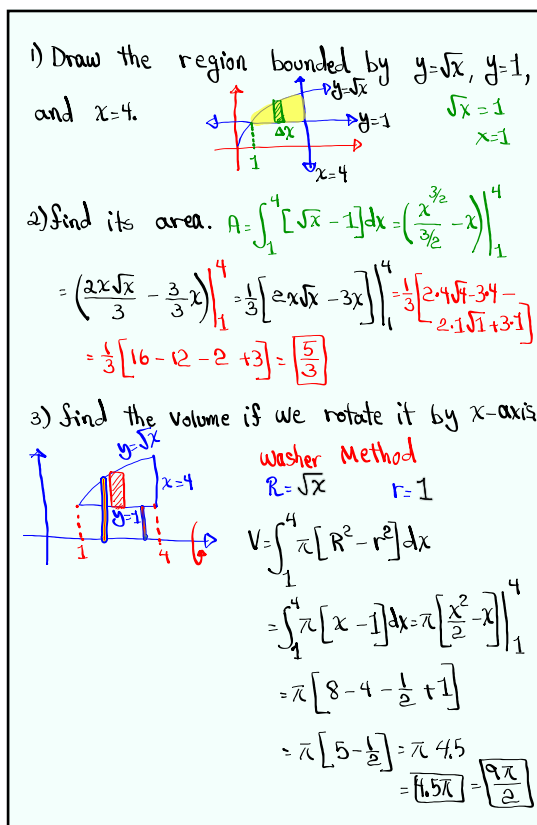 1) Draw the region bounded by y=√x, y=1,
and x=4.
y=√x
y=1
Δx
1
x=4
√x = 1
x=1
2) find its area. A=∫₁⁴[√x -1]dx=(x^(3/2)/(3/2) -x)|₁⁴
=(2x√x/3 - 3/3 x)|₁⁴ =1/3[2x√x -3x]|₁⁴ =1/3[2·4√4-3·4-
2·1√1+3·1]
=1/3[16-12-2+3]= 5/3
3) find the volume if we rotate it by x-axis
y=√x
x=4
y=1
1
4
Washer Method
R=√x r=1
V=∫₁⁴π[R²-r²]dx
=∫₁⁴π[x-1]dx=π[x²/2-x]|₁⁴
=π[8-4-1/2+1]
=π[5-1/2]=π 4.5
=4.5π = 9π/2